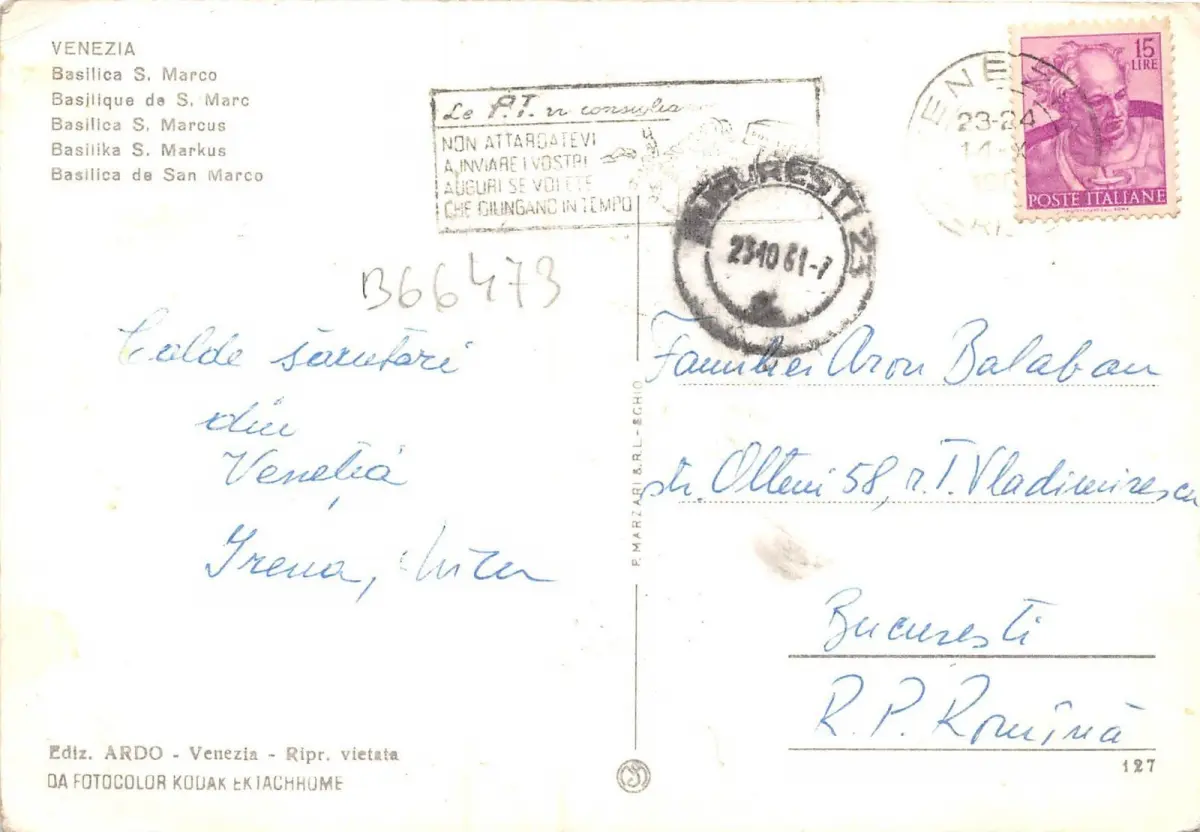 VENEZIA
Basilica S. Marco
Basilique de S. Marc
Basilica S. Marcus
Basilika S. Markus
Basilica de San Marco
Le P.T. vi consigliano
NON ATTARDATEVI
A INVIARE I VOSTRI
AUGURI SE VOLETE
CHE GIUNGANO IN TEMPO
23-24
15
LIRE
POSTE ITALIANE
BUCURESTI 23
23.10 61-7
B66473
Calde sărutări
din
Veneția
Irena,
P. MARZARI S.R.L. - SCHIO
Familiei Aron Balaban
str. Olteni 58, r. T. Vladimirescu
București
R. P. Romînă
Ediz. ARDO - Venezia - Ripr. vietata
DA FOTOCOLOR KODAK EKTACHROME
127